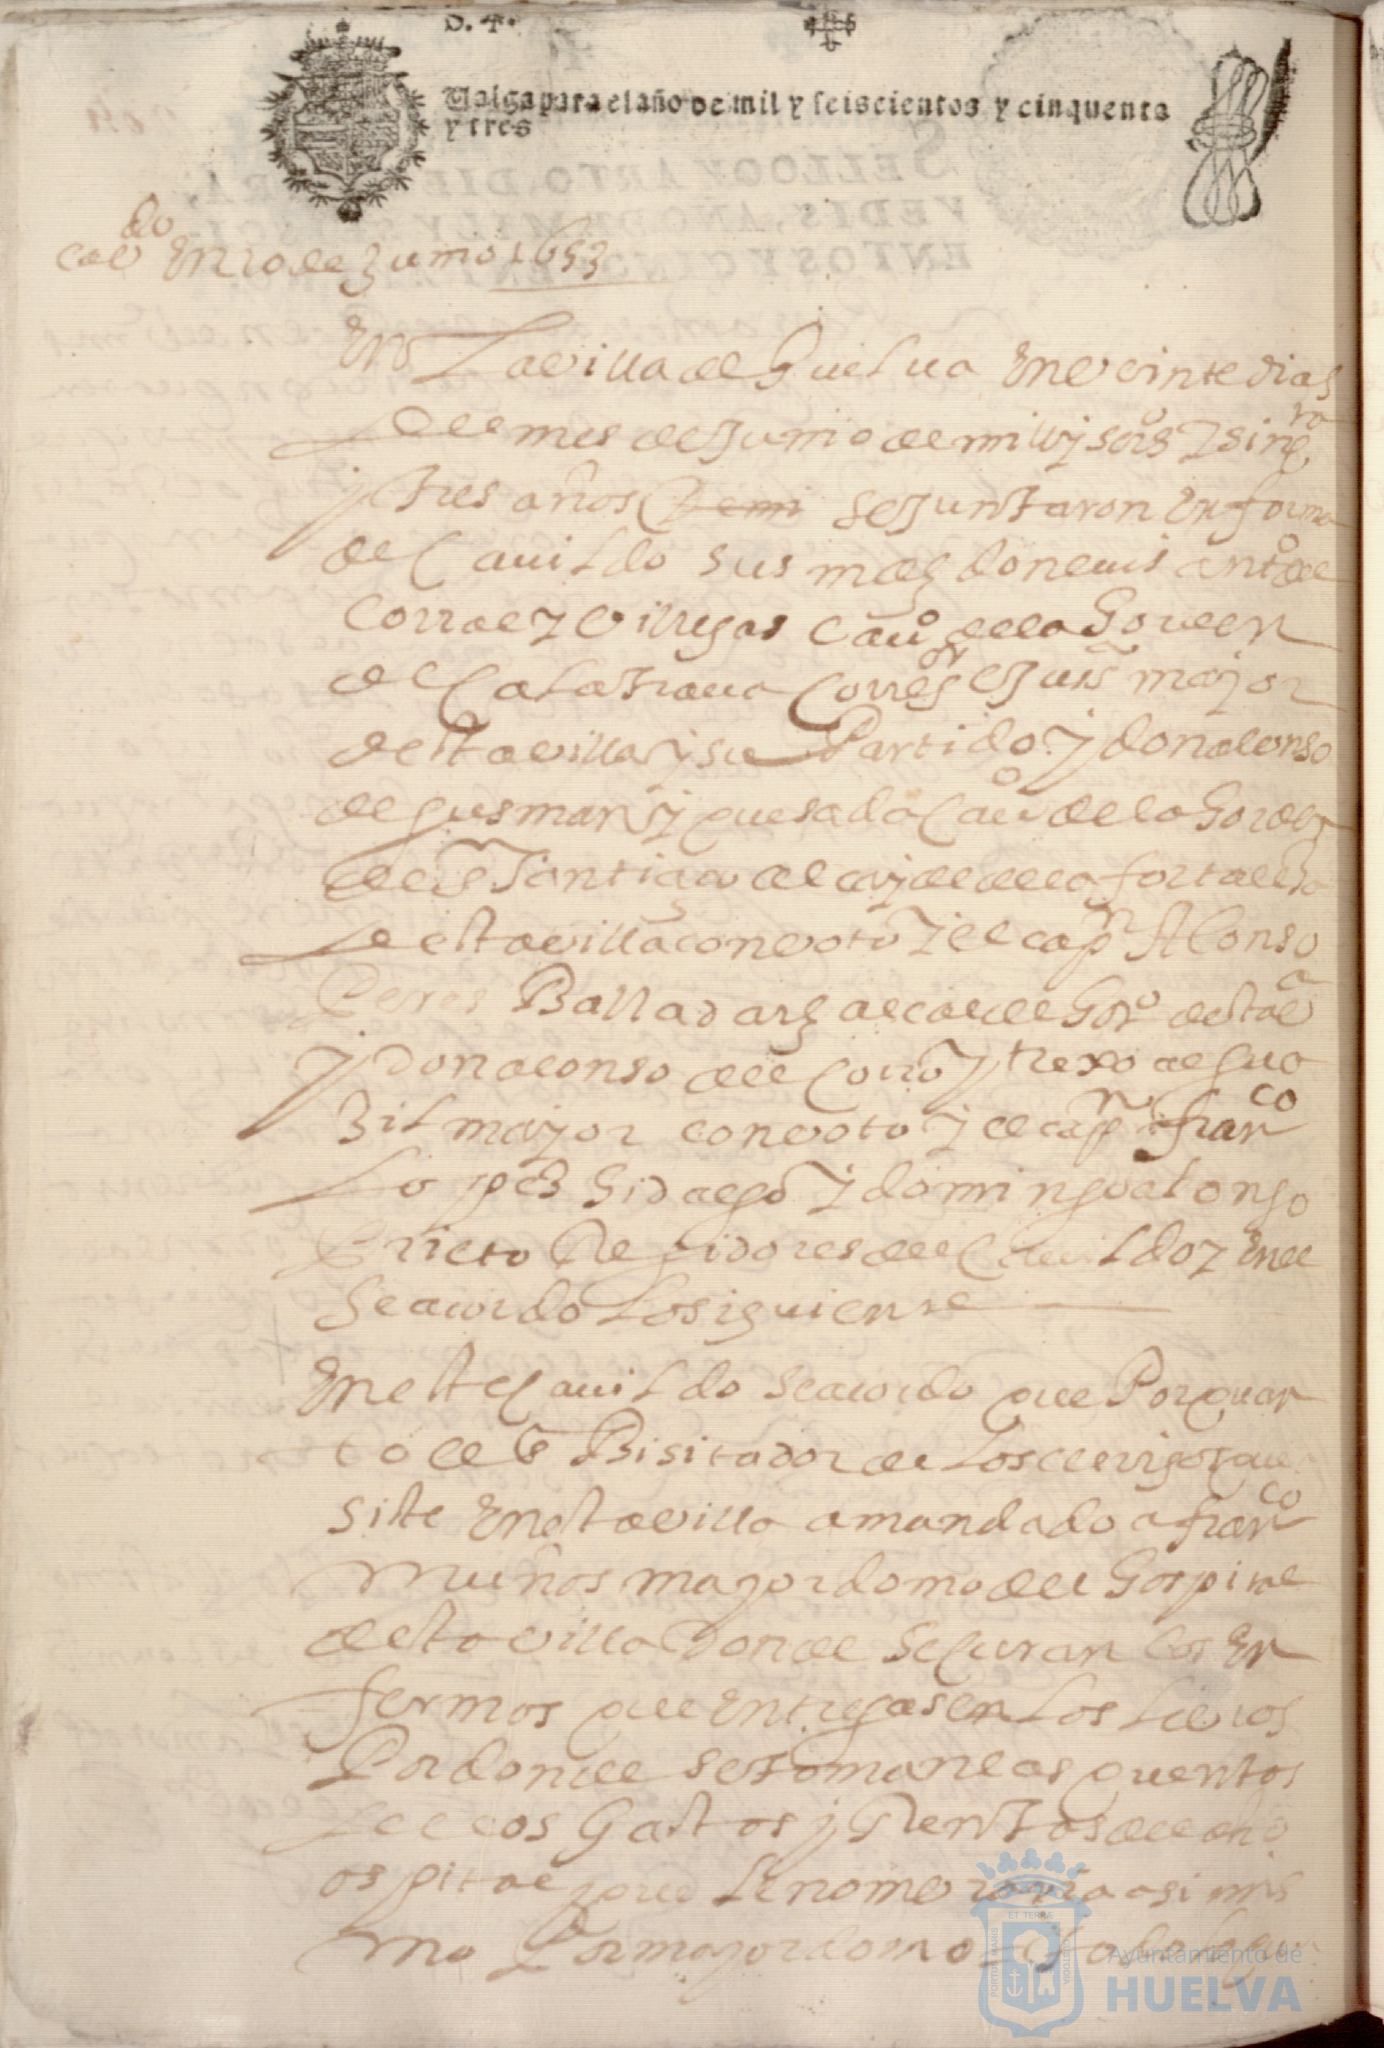 D. 4.
Valga para el año de mil y seiscientos y cinquenta
y tres
cavdo En 20 de Junio 1653
En La villa de Guelva En veinte dias
del mes de Junio de mill y sos y sinqta
y tres años se Juntaron En forma
de Cavildo sus mds don luis anto de
Corral y Villegas Cavo de la Horden
de Calatrava Corregor e Jues mayor
desta villa y su Partido y don alonso
de gusman y quesada Cavo de la Horden
de Santiago alcayde de la fortaleza
desta villa con voto y el capn Alonso
Peres Balladars alcalde Hordo desta va
y don alonso del Corro y trexo algua
zil mayor con voto y el capn franco
Lopez Hidalgo y domingo alonso
Prieto Regidores del Cavildo y En el
se acordo Lo siguiente
En este Cavildo se acordo que Por quan
to el Sr Bisitador de Los clerigos que
siste En esta villa a mandado a franco
Muños mayordomo del Hospital
desta villa donde se Curan los En
fermos que Entregasen Los Libros
Por donde se toman las quentas
de los Gastos y Rentos del dho
ospital que le nombraria asi mis
mo Por mayordomo
Ayuntamiento de
HUELVA